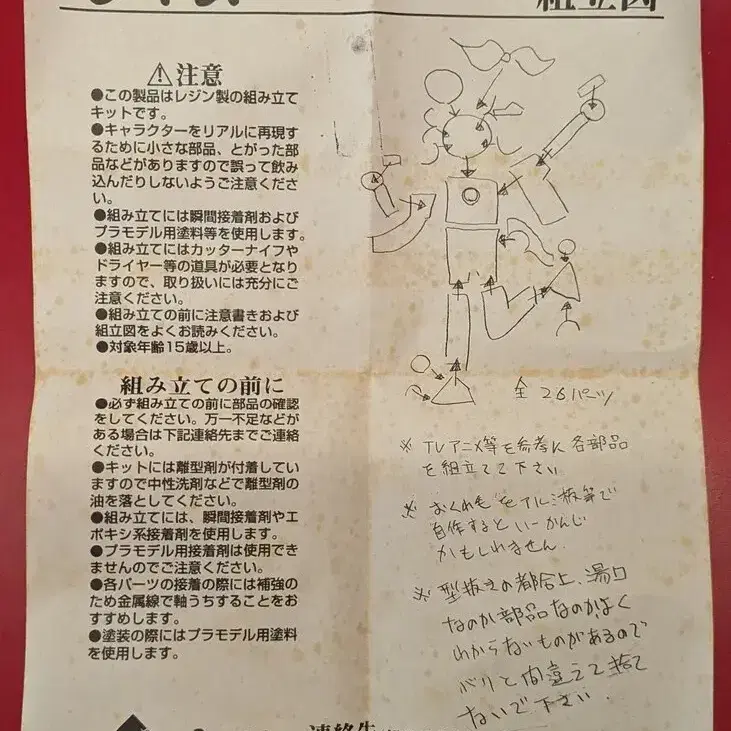 組立図
⚠注意
●この製品はレジン製の組み立て
キットです。
●キャラクターをリアルに再現す
るために小さな部品、とがった部
品などがありますので誤って飲み
込んだりしないようご注意くださ
い。
●組み立てには瞬間接着剤および
プラモデル用塗料等を使用します。
●組み立てにはカッターナイフや
ドライヤー等の道具が必要となり
ますので、取り扱いには充分にご
注意ください。
●組み立ての前に注意書きおよび
組立図をよくお読みください。
●対象年齢15歳以上。
組み立ての前に
●必ず組み立ての前に部品の確認
をしてください。万一不足などが
ある場合は下記連絡先までご連絡
ください。
●キットには離型剤が付着してい
ますので中性洗剤などで離型剤の
油を落としてください。
●組み立てには、瞬間接着剤やエ
ポキシ系接着剤を使用します。
●プラモデル用接着剤は使用でき
ませんのでご注意ください。
●各パーツの接着の際には補強の
ため金属線で軸うちすることをお
すすめします。
●塗装の際にはプラモデル用塗料
を使用します。
全26パーツ
※TVアニメ等を参考に各部品
を組立てて下さい
※おくれ毛をアルミ板等で
自作するといーかんじ
かもしれません.
※型抜きの都合上、湯口
なのか部品なのかよく
わからないものがあるので
バリと間違えて捨て
ないで下さい.
連絡先